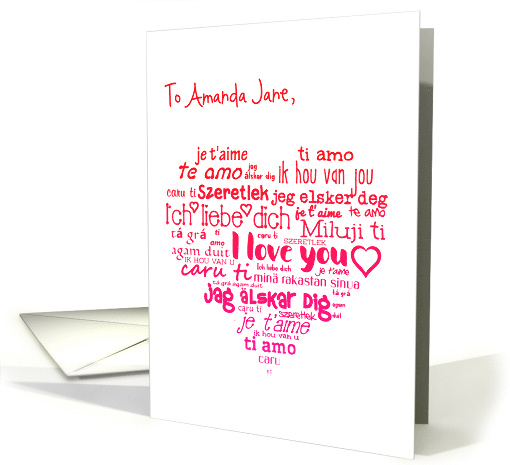 To Amanda Jane,
je t'aime ti amo
te amo jag älskar dig ik hou van jou
caru ti Szeretlek jeg elsker deg
Ich liebe dich je t'aime te amo
tá grá ti amo caru ti SZERETLEK Miluji ti
agam duit I love you
IK HOU VAN U Ich liebe dich je t'aime
caru ti minä rakastan sinua
tá grá agam duit tá grá
Jag älskar Dig agam duit
caru ti szeretlek
je t'aime
ik hou van u
ti amo
caru
ti